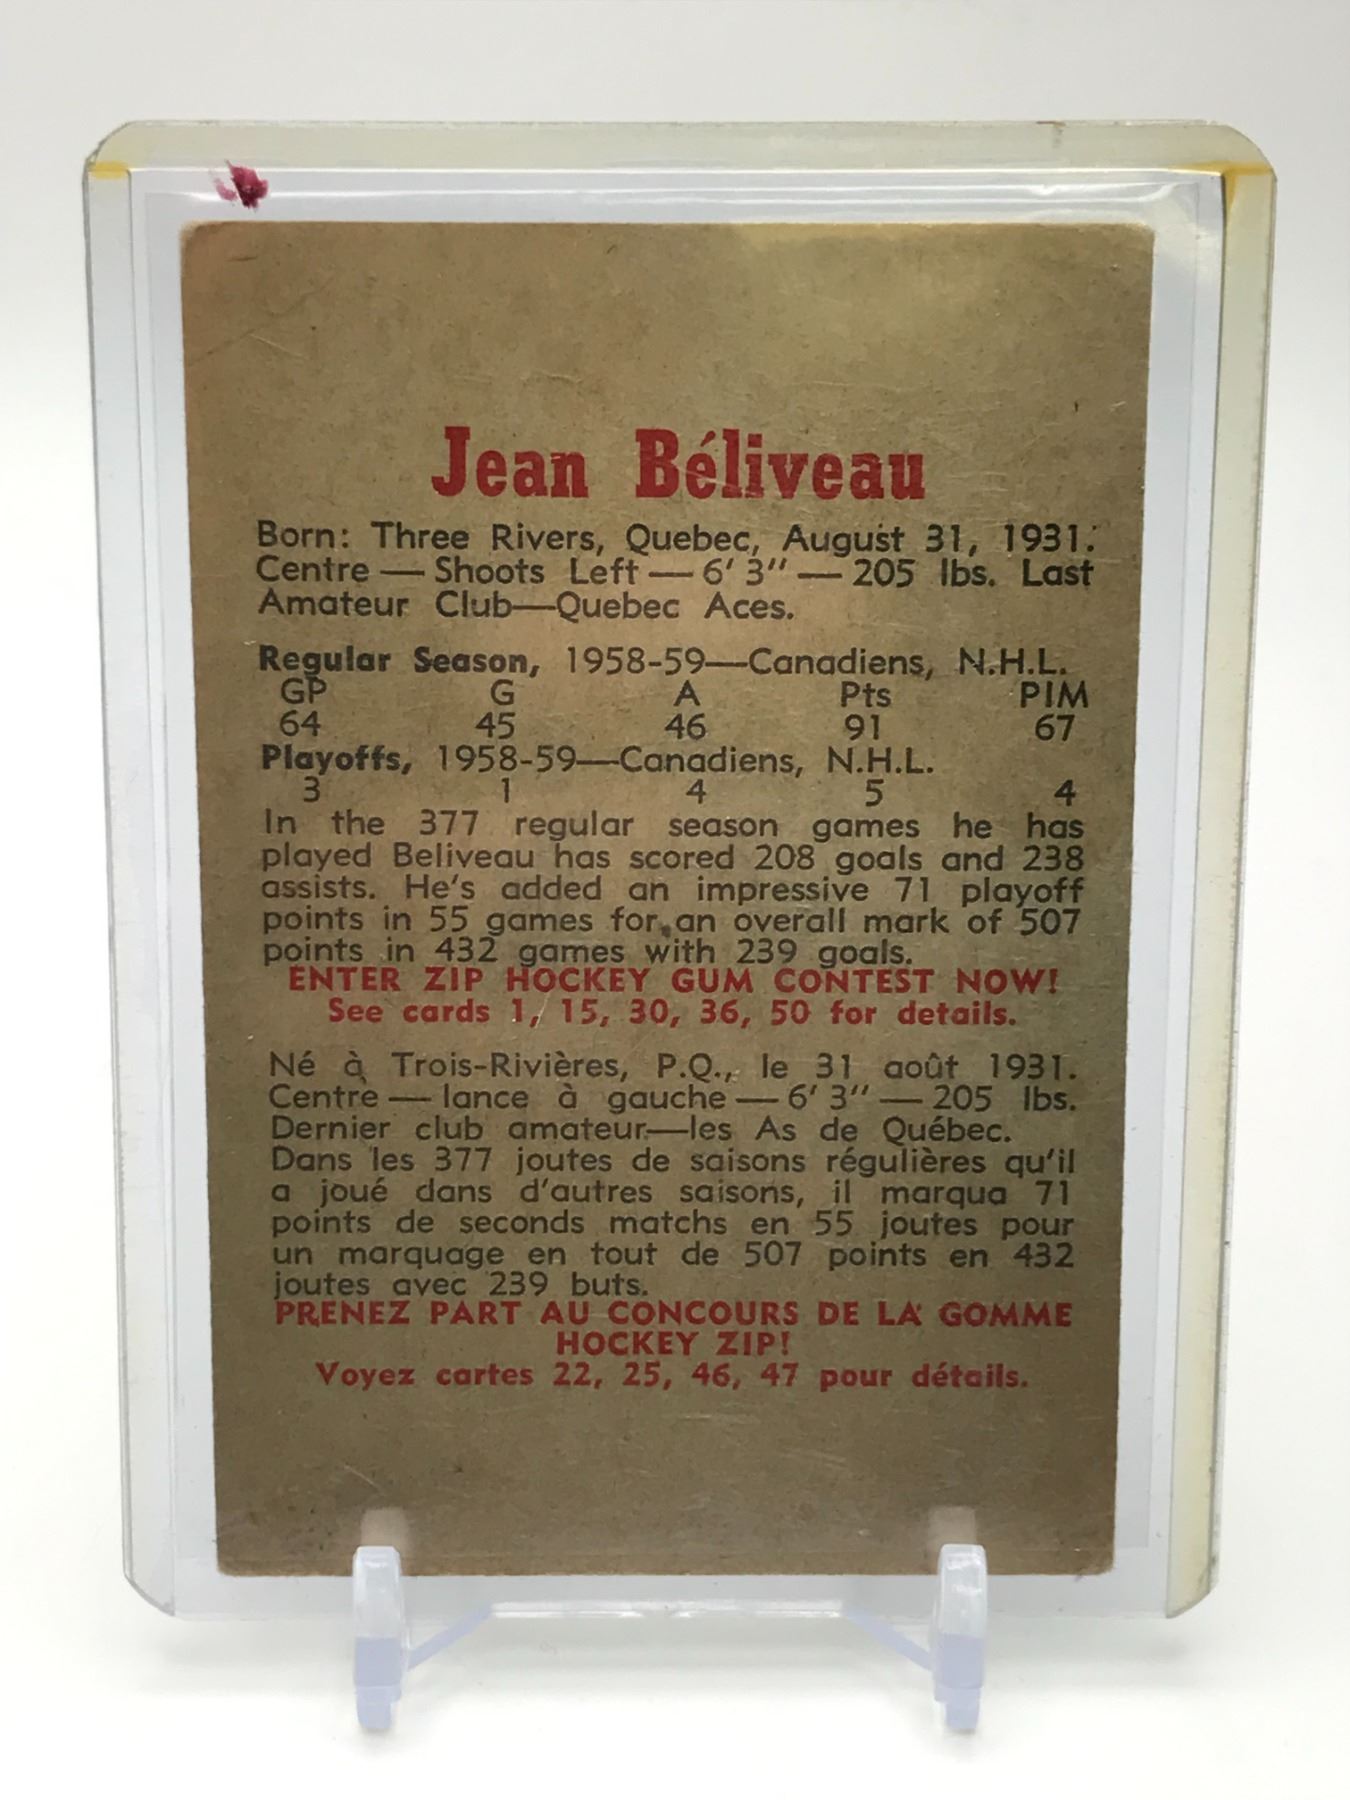 Jean Béliveau
Born: Three Rivers, Quebec, August 31, 1931.
Centre — Shoots Left — 6' 3" — 205 lbs. Last
Amateur Club—Quebec Aces.
Regular Season, 1958-59—Canadiens, N.H.L.
GP G A Pts PIM
64 45 46 91 67
Playoffs, 1958-59—Canadiens, N.H.L.
3 1 4 5 4
In the 377 regular season games he has
played Beliveau has scored 208 goals and 238
assists. He's added an impressive 71 playoff
points in 55 games for an overall mark of 507
points in 432 games with 239 goals.
ENTER ZIP HOCKEY GUM CONTEST NOW!
See cards 1, 15, 30, 36, 50 for details.
Né à Trois-Rivières, P.Q., le 31 août 1931.
Centre — lance à gauche — 6' 3" — 205 lbs.
Dernier club amateur—les As de Québec.
Dans les 377 joutes de saisons régulières qu'il
a joué dans d'autres saisons, il marqua 71
points de seconds matchs en 55 joutes pour
un marquage en tout de 507 points en 432
joutes avec 239 buts.
PRENEZ PART AU CONCOURS DE LA GOMME
HOCKEY ZIP!
Voyez cartes 22, 25, 46, 47 pour détails.